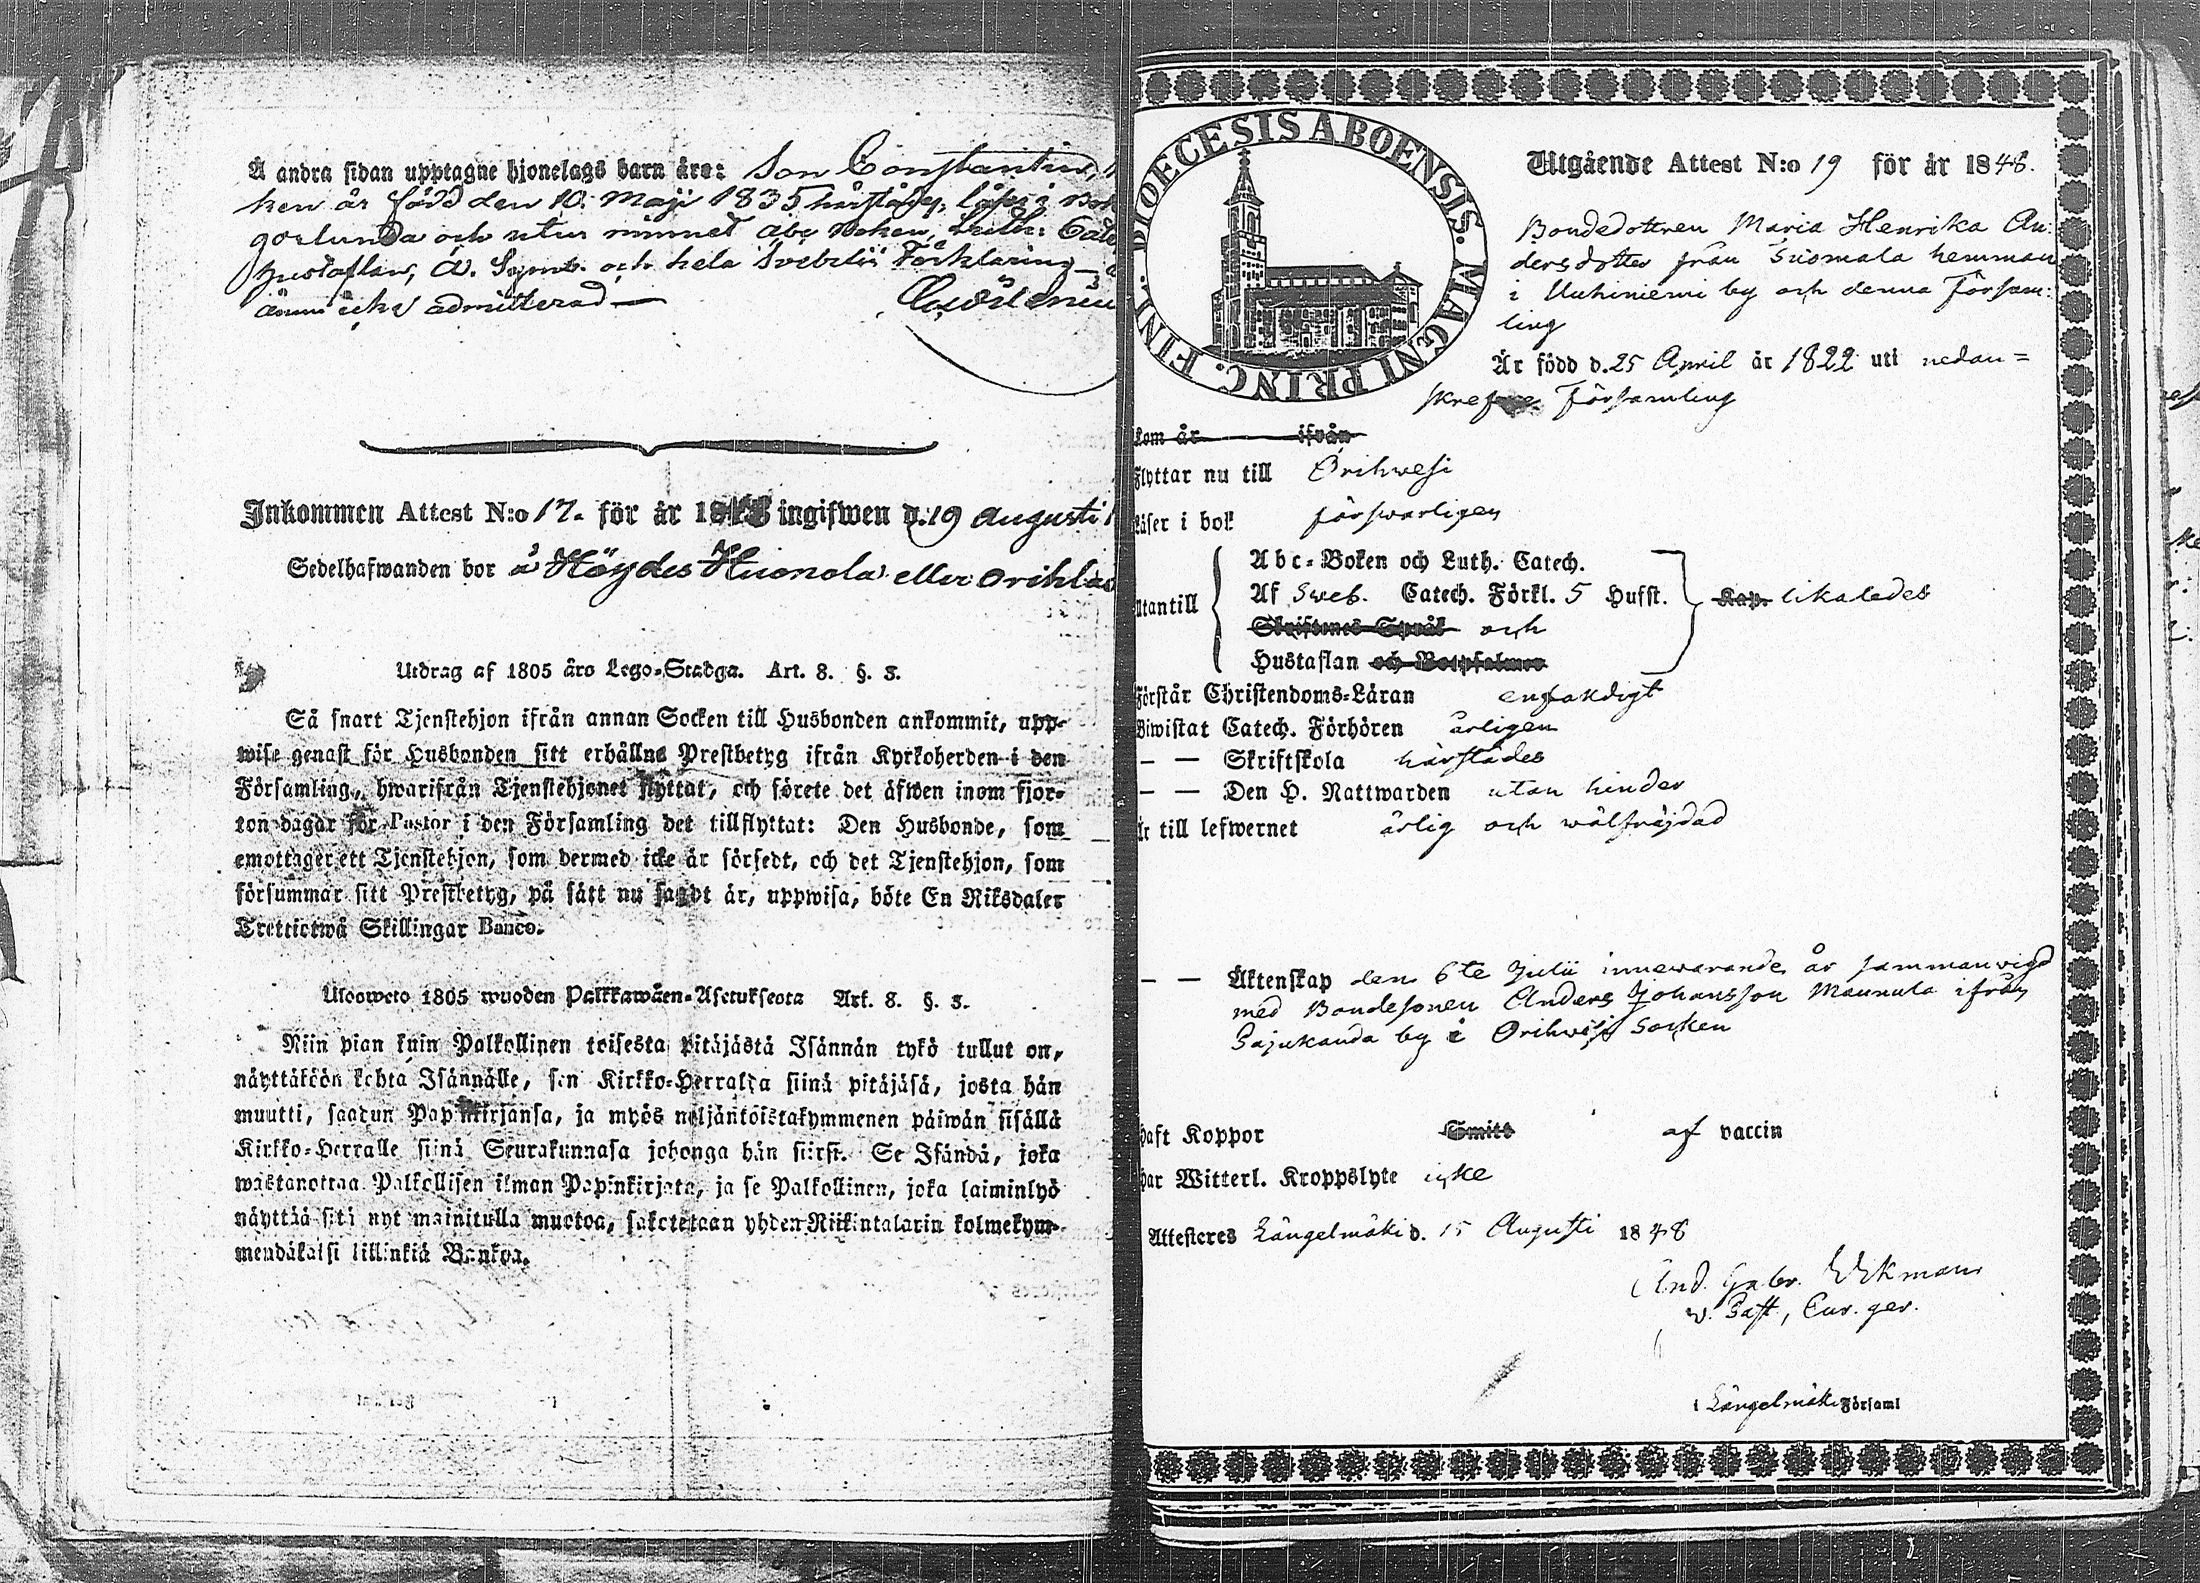 Å andra sidan upptagne hjonelags barn äro: Son Constantin,
ken är född den 10. Maji 1835 härstädes, läser i
och utur minnet abc boken, Luth: Cate
hustaflan, A. Symb. och hela Svebelii Förklaring
ännu icke admitterad —
Inkommen Attest N:o 17. för år 18 ingifwen d. 19 Augusti 1
Sedelhafwanden bor å Höydes eller
Utdrag af 1805 års Lego-Stadga. Art. 8. §. 3.
Så snart Tjenstehjon ifrån annan Socken till Husbonden ankommit, upp-
wise genast för Husbonden sitt erhållne Prestbetyg ifrån Kyrkoherden i den
Församling, hwarifrån Tjenstehjonet flyttat, och förete det äfwen inom fjor-
ton dagar för Pastor i den Församling det tillflyttat: Den Husbonde, som
emottager ett Tjenstehjon, som dermed icke är försedt, och det Tjenstehjon, som
försummar sitt Prestbetyg, på sätt nu sagdt är, uppwisa, böte En Riksdaler
Trettiotwå Skillingar Banco.
Ulosweto 1805 wuoden Palkkawäen-Asetuksesta Art. 8. §. 3.
Niin pian kuin Palkollinen toisesta pitäjästä Isännän tykö tullut on,
näyttäköön kohta Isännälle, sen Kirkko-Herralda siinä pitäjäsä, josta hän
muutti, saadun Papinkirjansa, ja myös neljäntoistakymmenen päiwän sisällä
Kirkko-Herralle siinä Seurakunnasa johonga hän siirsi. Se Isändä, joka
wastanottaa Palkollisen ilman Papinkirjata, ja se Palkollinen, joka laiminlyö
näyttää sitä nyt mainitulla muotoa, sakotetaan yhden Riikintalarin kolmekym-
mendäkaksi killinkiä Bankoa.
DIOECESIS ABOENSIS. MAGNI PRINC. FINL.
Utgående Attest N:o 19 för år 1848.
Bondedottren Maria Henrika An:
dersdotter från Suomala hemman
i Uuhiniemi by och denna Försam:
ling
Är född d. 25 April år 1822 uti nedan=
skrefne Församling
kom år ifrån
Flyttar nu till Orihwesi
Läser i bok försvarligen
Abc-Boken och Luth. Catech.
Utantill Af Sweb. Catech. Förkl. 5 Hufst. Kap. likaledes
Skriftenes Språk och
Hustaflan och Botpsalmer
Förstår Christendoms-Läran enfaldigt
Biwistat Catech. Förhören årligen
— — Skriftskola härstädes
— — Den H. Nattwarden utan hinder
Är till lefwernet ärlig och wälfräjdad
— — Äktenskap den 6te Julii innewarande år sammanvigd
med Bondesonen Anders Johansson Maunula ifrån
Sajukanda by i Orihwesi Socken
haft Koppor Smitt af vaccin
har Witterl. Kroppslyte icke
Attesteres Längelmäki d. 15 Augusti 1848
And. Gabr. Ekman
v. Past, Cur. ger.
i Längelmäki Församl